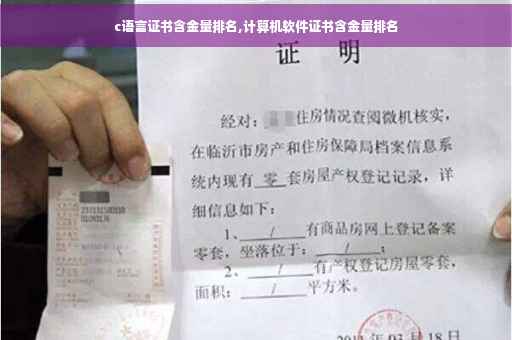 c语言证书含金量排名,计算机软件证书含金量排名
证 明
经对: 住房情况查阅微机核实,
在临沂市房产和住房保障局档案信息系
统内现有 零 套房屋产权登记记录,详
细信息如下:
1、 / 有商品房网上登记备案
零套,坐落位于: / ;
2、 / 有产权登记房屋零套,
面积: / 平方米。
03月18日